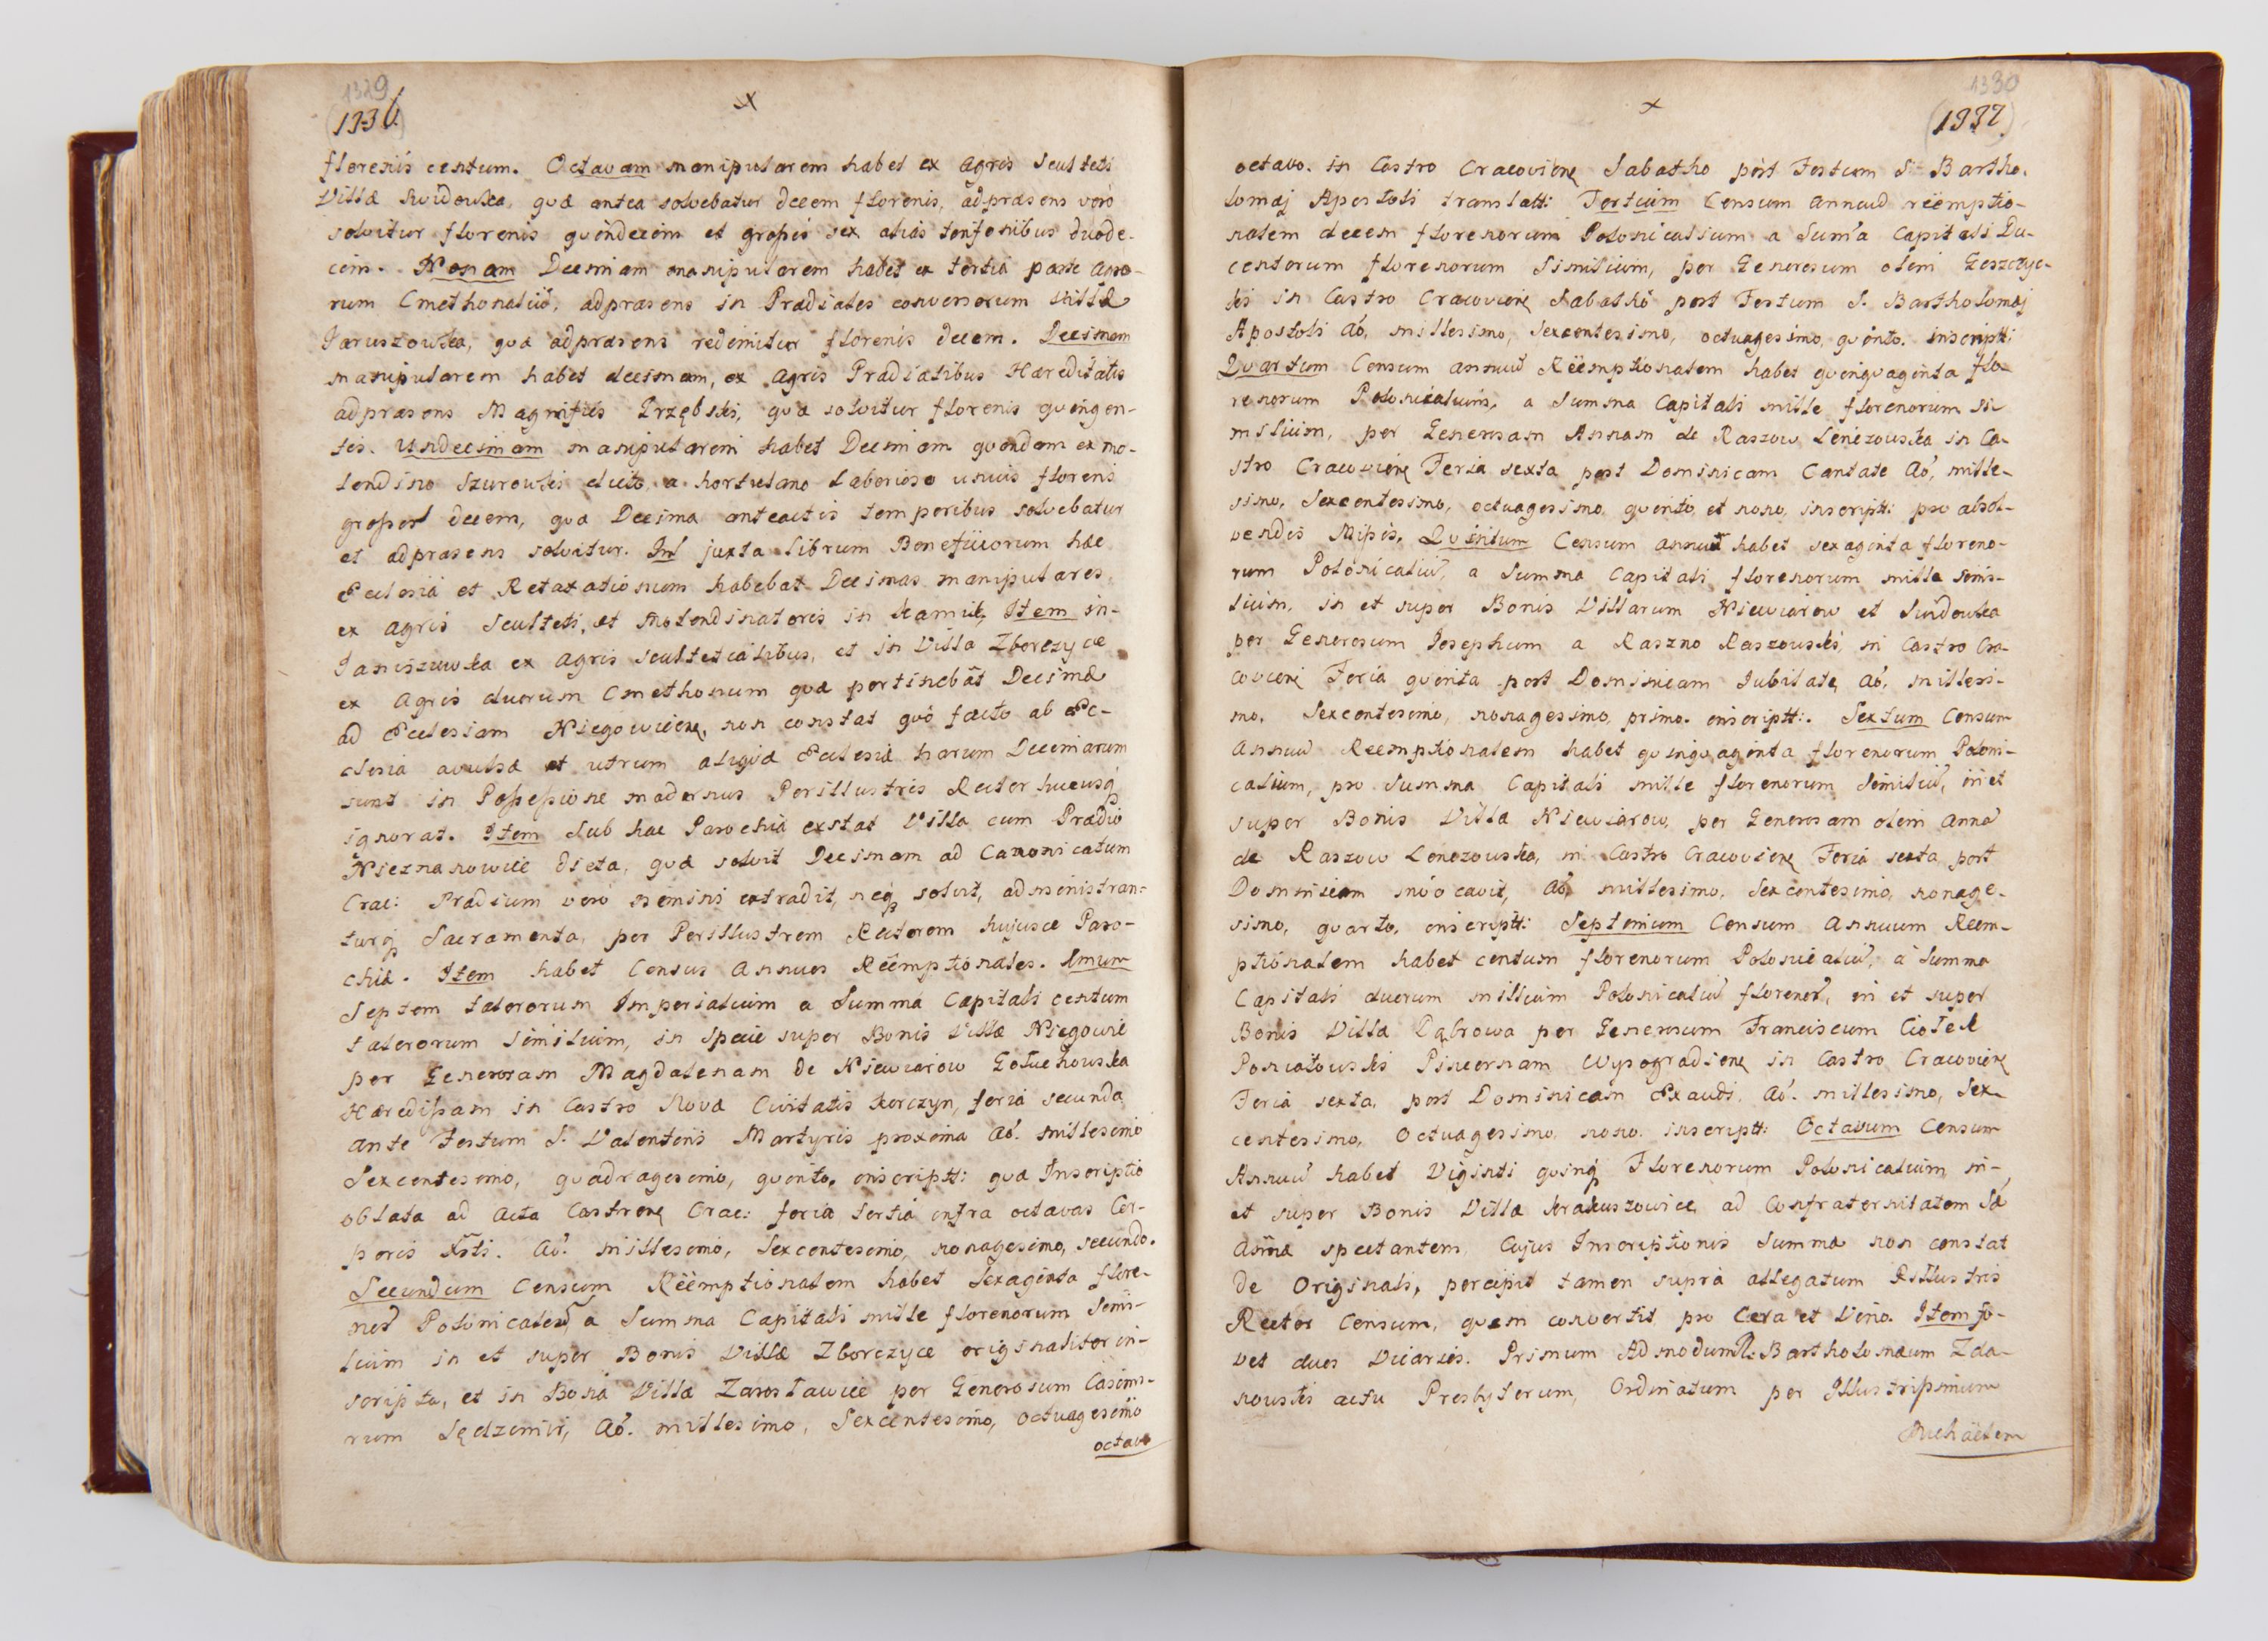 1329
(1336)
x
florenis centum. Octavam manipularem habet ex agris Sculteti
Villæ Surdowka, quæ antea solvebatur decem florenis, adpræsens verò
solvitur florenis quindecim et grossis sex aliàs tynfonibus duode-
cim. Nonam Decimam manipularem habet ex tertia parte Agro-
rum Cmethonaliũ, adpræsens in Prædiales conversorum Villæ
Jaruszowka, quæ adpræsens redimitur florenis decem. Decimam
manipularem habet decimam, ex Agris Prædialibus Hæreditatis
adpræsens Magnifici Grzębski, quæ solvitur florenis quingen-
tis. Undecimam manipularem habet Decimam quondam ex mo-
lendino Szurowski dicto, a hortulano Laborioso unius floreni
grossor̃ decem, quæ Decima anteactis temporibus solvebatur
et adpræsens solvitur. juxta Librum Beneficiorum hæc
Ecclesia et Retaxationum habebat Decimas manipulares,
ex agris Sculteti, et Molendinatoris in Item in
Janiszowka ex Agris Scultetialibus, et in Villa Zborczyce
ex Agris duorum Cmethonum quæ pertinebãt Decimæ
ad Ecclesiam Niegowicien, non constat quó facto ab Ec-
clesia avulsæ et utrum aliqua Ecclesia harum Decimarum
sunt in Possessione modernus Perillustris Rector hucusq
ignorat. Item Sub hac Parochia exstat Villa cum Prædio
Nieznanowice dicta, quæ solvit Decimam ad Canonicatum
Crac: Prædium vero nemini extradit, neq solvit, administran-
turq Sacramenta, per Perillustrem Rectorem hujusce Paro-
chiæ. Item habet Census Annuos Rëemptionales. Imum
Septem talerorum Imperialium a Summa Capitali centum
talerorum Similium, in Specie super Bonis Villæ Niegowic
per Generosam Magdalenam de Niewiarow Gołuchowska
Hæredissam in Castro Novæ Civitatis Korczyn, feria secunda
ante Festum S. Valentini Martyris proxima Aõ. millesimo
Sexcentesimo, quadragesimo, quinto, inscriptt: quæ Inscriptio
oblata ad Acta Castren Crac: feria tertiâ infra octavas Cor-
poris Xsti. Aõ. millesimo, Sexcentesimo, nonagesimo, secundo.
Secundum Censum Rëemptionalem habet Sexaginta flore-
nor̃ Polonicaliũ, a Summa Capitali mille florenorum Simi-
lium in et super Bonis Villæ Zborczyce originaliter in-
scripta, et in Bona Villæ Zarosławice per Generosum Casimi-
rum Sędzimir, Aõ. millesimo, Sexcentesimo, octuagesimo
octavo
1330
(1337)
x
octavo. in Castro Cracovien Sabatho post Festum S. Bartho-
lomæj Apostoli translatt: Tertium Censum annuũ rëemptio-
nalem decem florenorum Polonicalium a Sum̃a Capitali Du-
centorum florenorum Similium, per Generosum olim Geszczyc-
ki in Castro Cracovien Sabatho post Festum S. Bartholomæj
Apostoli Aõ. millesimo, Sexcentesimo, octuagesimo, quinto. inscriptt:
Quartum Censum annuũ Rëemptionalem habet quinquaginta flo-
renorum Polonicalium, a Summa Capitali mille florenorum Si-
milium, per Generosam Annam de Raszow Lenczowska in Ca-
stro Cracovien Feria sexta post Dominicam Cantate Aõ, mille-
simo, Sexcentesimo, octuagesimo, quinto, et nono, inscriptt: pro absol-
vendis Missis. Quintum Censum annuũ habet sexaginta floreno-
rum Polonicaliũ, a Summa Capitali florenorum mille simi-
lium, in et super Bonis Villarum Niewiarow et Surdowka
per Generosum Josephum a Raszno Raszowski, in Castro Cra-
covien Feria quinta post Dominicam Jubilate, Aõ. millesi-
mo, Sexcentesimo, nonagesimo, primo. inscriptt:. Sextum Censum
Annuũ Rëemptionalem habet quinquaginta florenorum Poloni-
calium, pro Summa Capitali mille florenorum Similiũ, in et
super Bonis Villæ Niewiarow, per Generosam olim Annã
de Raszow Lenczowska, in Castro Cracovien Feria sexta post
Dominicam invocavit, Aõ. millesimo, Sexcentesimo, nonage-
simo, quarto, inscriptt: Septimum Censum Annuum Rëem-
ptionalem habet centum florenorum Polonicaliũ, à Summa
Capitali duorum millium Polonicaliũ florenor̃, in et super
Bonis Villæ Dąbrowa per Generosum Franciscum Ciołek
Poniatowski Pincernam Wyszogradien in Castro Cracovien
Feria sexta, post Dominicam Exaudi, Aõ. millesimo, Sex-
centesimo, Octuagesimo, nono. inscriptt: Octavum Censum
Annuũ habet Viginti quinq Florenorum Polonicalium in-
et super Bonis Villæ Krakuszowice, ad Confraternitatem Sæ
Annæ spectantem, Cujus Inscriptionis Summa non constat
de Originali, percipit tamen suprà allegatum Rillustris
Rector Censum, quem convertit pro Cera et Vino. Item fo-
vet duos Vicarios. Primum Admodum R. Bartholomæum Zda-
nowski actu Presbyterum, Ordinatum per Illustrissimum
Michäelem